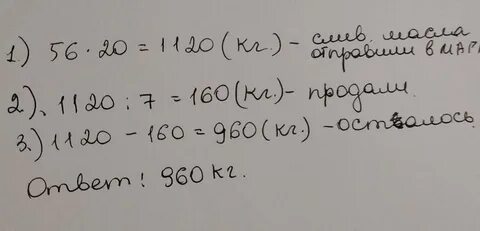 1.) 56 · 20 = 1120 (кг.) - слив. масла
отправили в МАГ
2). 1120 : 7 = 160 (кг.) - продали.
3.) 1120 - 160 = 960 (кг.) - осталось.
Ответ! 960 кг.